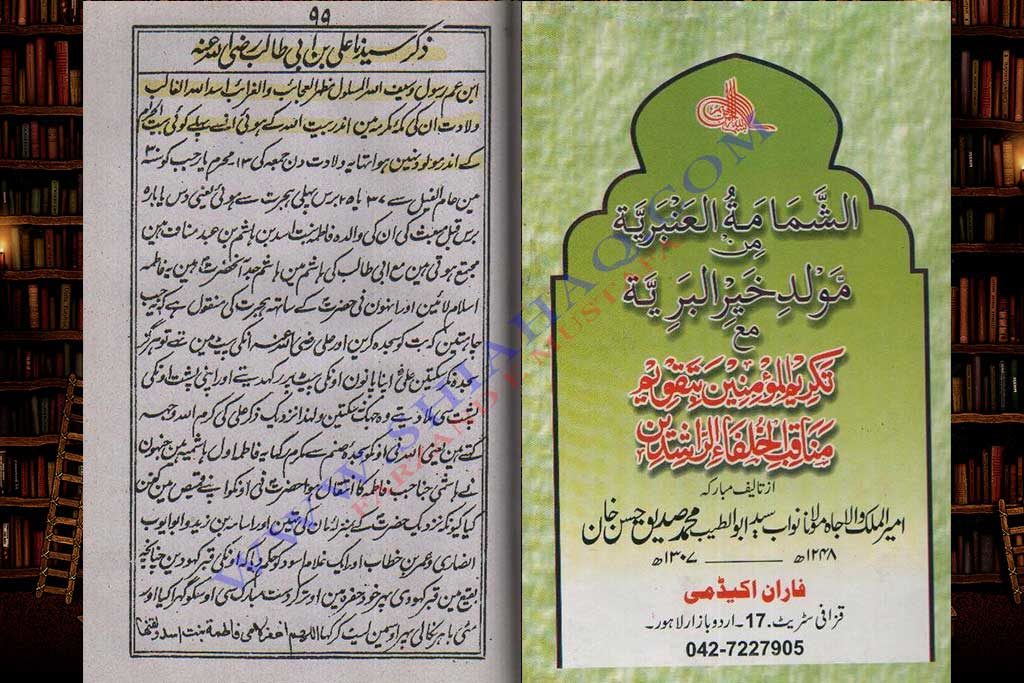 ۹۹
ذکر سیدنا علی بن ابی طالب رضی اللہ عنہ
ابن عم رسول وسیف اللہ المسلول مظہر العجائب والغرائب اسد اللہ الغالب
ولادت ان کی مکہ مکرمہ مین اندر بیت اللہ کے ہوئی انسے پہلے کوئی بیت الحرام
کے اندر مولود نہین ہوا تھا یہ ولادت دن جمعہ کی ۱۳ محرم یا رجب کو ۳۰
مین عام الفیل سے ۳۷ یا ۲۵ برس پہلی ہجرت سے ہوئی یعنی دس یا بارہ
برس قبل مبعث کی ان کی والدہ فاطمہ بنت اسد بن ہاشم بن عبد مناف ہین
مجتمع ہوتی ہین مع ابی طالب کی ہاشم مین ہاشم جد آنحضرت ہین یہ فاطمہ
اسلام لائین اور انہون نی حضرت کے ساتہہ ہجرت کی منقول ہے کہ جب
چاہتین کہ بت کو سجدہ کرین اور علی رضی اللہ عنہ انکی پیٹ مین تھے تو ہرگز
سجدہ نکر سکتین علی اپنا پانون اونکی پیٹ پر رکہدیتے اور اپنی پشت اونکی
پشت سی ملا دیتے وہ جھک نسکتین ولہذا نزدیک ذکر علی کی کرم اللہ وجہہ
کہتے ہین یعنی اللہ نی اونکو سجدہ صنم سے مکرم رکہا یہ فاطمہ اول ہاشمیہ ہین جنہون
نے ہاشمی جنا جب فاطمہ کا انتقال ہوا حضرت نی اونکو اپنے قمیص مین کفن
کیا کیونکہ نزدیک حضرت کے بمنزلہ مان کی تہین اور اسامہ بن زید و ابو ایوب
انصاری و عمر بن خطاب اور ایک غلام اسود کو حکم دیا کہ اونکی قبر کہودین چنانچہ
بقیع مین قبر کہودی پہر خود حفرہ مین اوتر کر دست مبارک سی اوسکو گہرا کیا اور
مٹی باہر نکالی پہر اوسمین لیٹ کر کہا اللہم اغفر لامی فاطمۃ بنت اسد و لقنہا
الشَّمَامَةُ العَنْبَرِيَّة
مِن
مَوْلدِ خَيْرِ البَرِيَّة
مع
تکریم المؤمنین بتقویم
مناقب الخلفاء الراشدین
از تالیف مبارکہ
امیر الملک والا جاہ مولانا نواب سید ابو الطیب محمد صدیق حسن خان
۱۲۴۸ھ ـــــــ ۱۳۰۷ھ
فاران اکیڈمی
قذافی سٹریٹ ۔17۔ اردو بازار لاہور۔
042-7227905
WWW.SHAHHAQ.COM